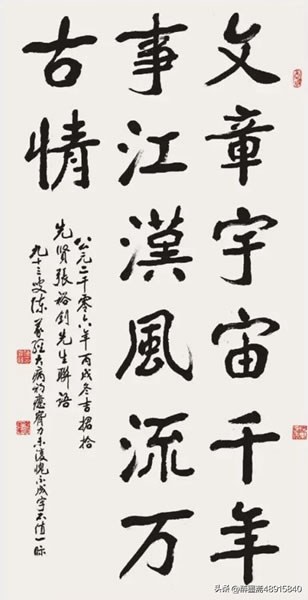 文章宇宙千年
事江漢風流万
古情
公元二千零六年丙戌冬吉拾
先賢張裕釗先生聯語
九十三叟陳義經大病初癒臂力未復愧不成字不值一哂
头条 @醉墨斋48915840